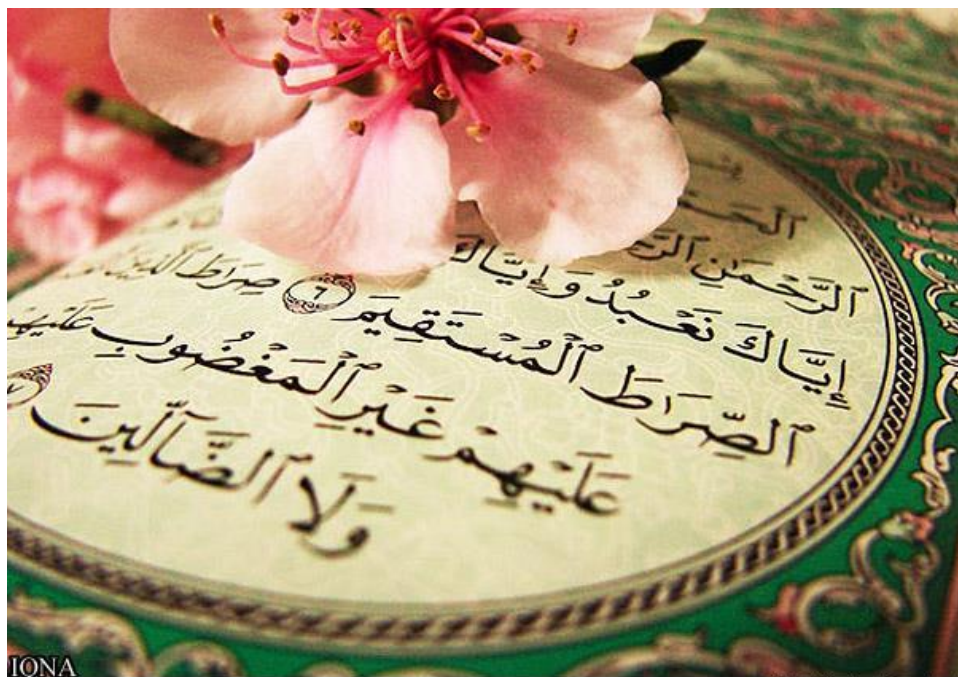 ٱلرَّحْمَٰنِ
إِيَّاكَ نَعْبُدُ وَإِيَّاكَ
ٱلصِّرَاطَ ٱلْمُسْتَقِيمَ ٦ صِرَاطَ ٱلَّذِينَ
عَلَيْهِمْ غَيْرِ ٱلْمَغْضُوبِ عَلَيْهِمْ
وَلَا ٱلضَّآلِّينَ ٧
IQNA